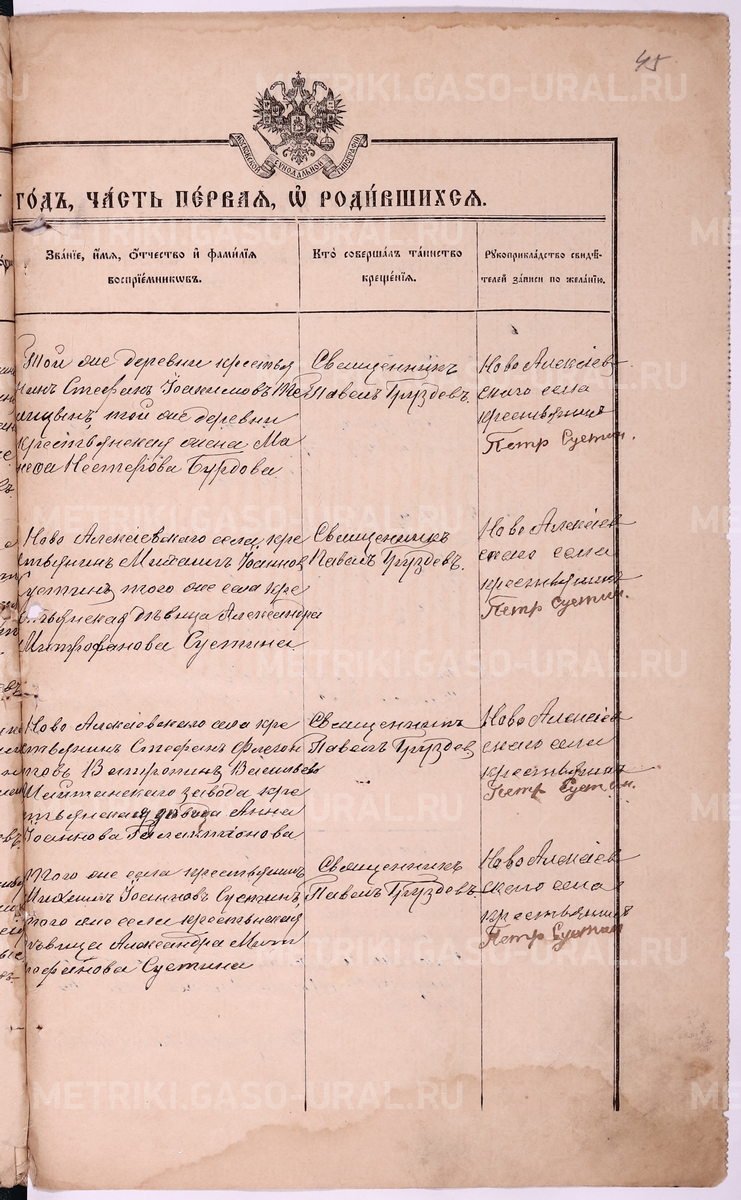 45
МОСКОВСКОЙ СѴНОДАЛЬНОЙ ТИПОГРАФІИ
ГО́ДЪ, ЧА́СТЬ ПЕ́РВАЯ, Ѡ҆ РОДИ́ВШИХСЯ.
Зва́нїе, и҆́мя, ѻ҆́тчество и҆ фами́лїя
воспрїе́мникѡвъ.
Кто̀ соверша́лъ та́инство
креще́нїя.
Рꙋкоприкла́дство свидѣ́-
телей за́писи по жела́нїю.
Той же деревни крестья
нинъ Стефанъ Іоакимовъ
той же деревни
крестьянская жена Ма
Нестерова Бурдова
Священникъ
Павелъ Груздевъ.
Ново Алексѣев
скаго села
крестьянинъ
Петр Суетин.
Ново Алексѣевскаго села кре
стьянинъ Михаилъ Іоаннов
Суетинъ, того же села кре
стьянская дѣвица Александра
Митрофанова Суетина
Священникъ
Павелъ Груздевъ.
Ново Алексѣев
скаго села
крестьянинъ
Петр Суетин.
Ново Алексѣевскаго села кре
стьянинъ Стефанъ Флегон
товъ Ватропинъ Васильево
Шайтанскаго завода кре
стьянская Анна
Іоаннова Галактіонова
Священникъ
Павелъ Груздев
Ново Алексѣев
скаго села
крестьянинъ
Петр Суетин.
Того же села крестьянинъ
Михаилъ Іоанновъ Суетинъ,
того же села крестьянская
дѣвица Александра Мит
рофанова Суетина
Священникъ
Павелъ Груздевъ.
Ново Алексѣев
скаго села
крестьянинъ
Петр Суетин
METRIKI.GASO-URAL.RU